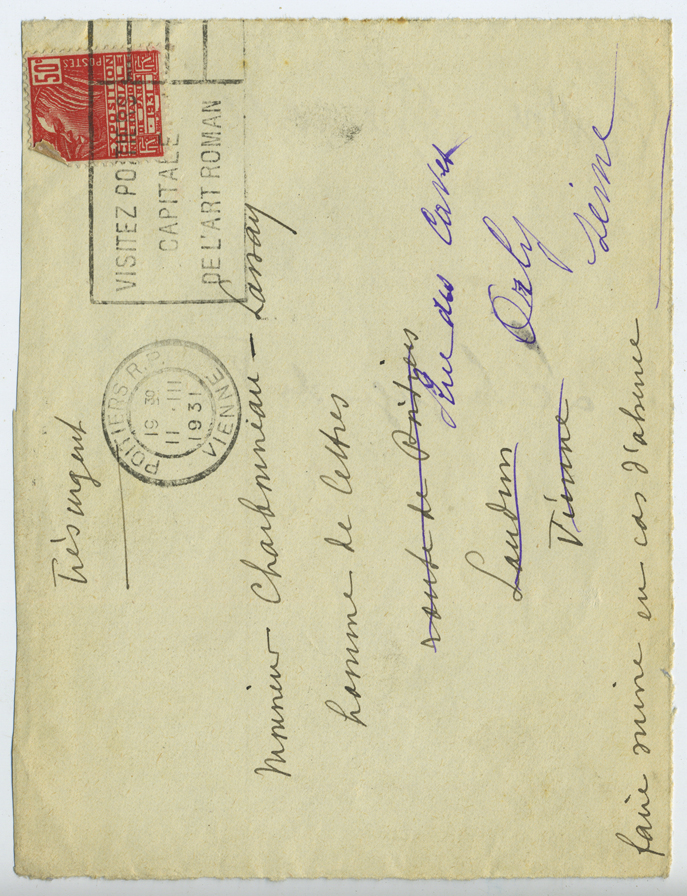 Très urgent
50c
POSTES
EXPOSITION
COLONIALE
PARIS
1931
VISITEZ POITIERS
CAPITALE
DE L'ART ROMAN
POITIERS R.P.
19 30
11 · III
1931
VIENNE
Monsieur Charbonneau - Lassay
homme de lettres
route de Poitiers
Rue des Caves
Loudun
Orly
Vienne
Seine
faire suivre en cas d'absence